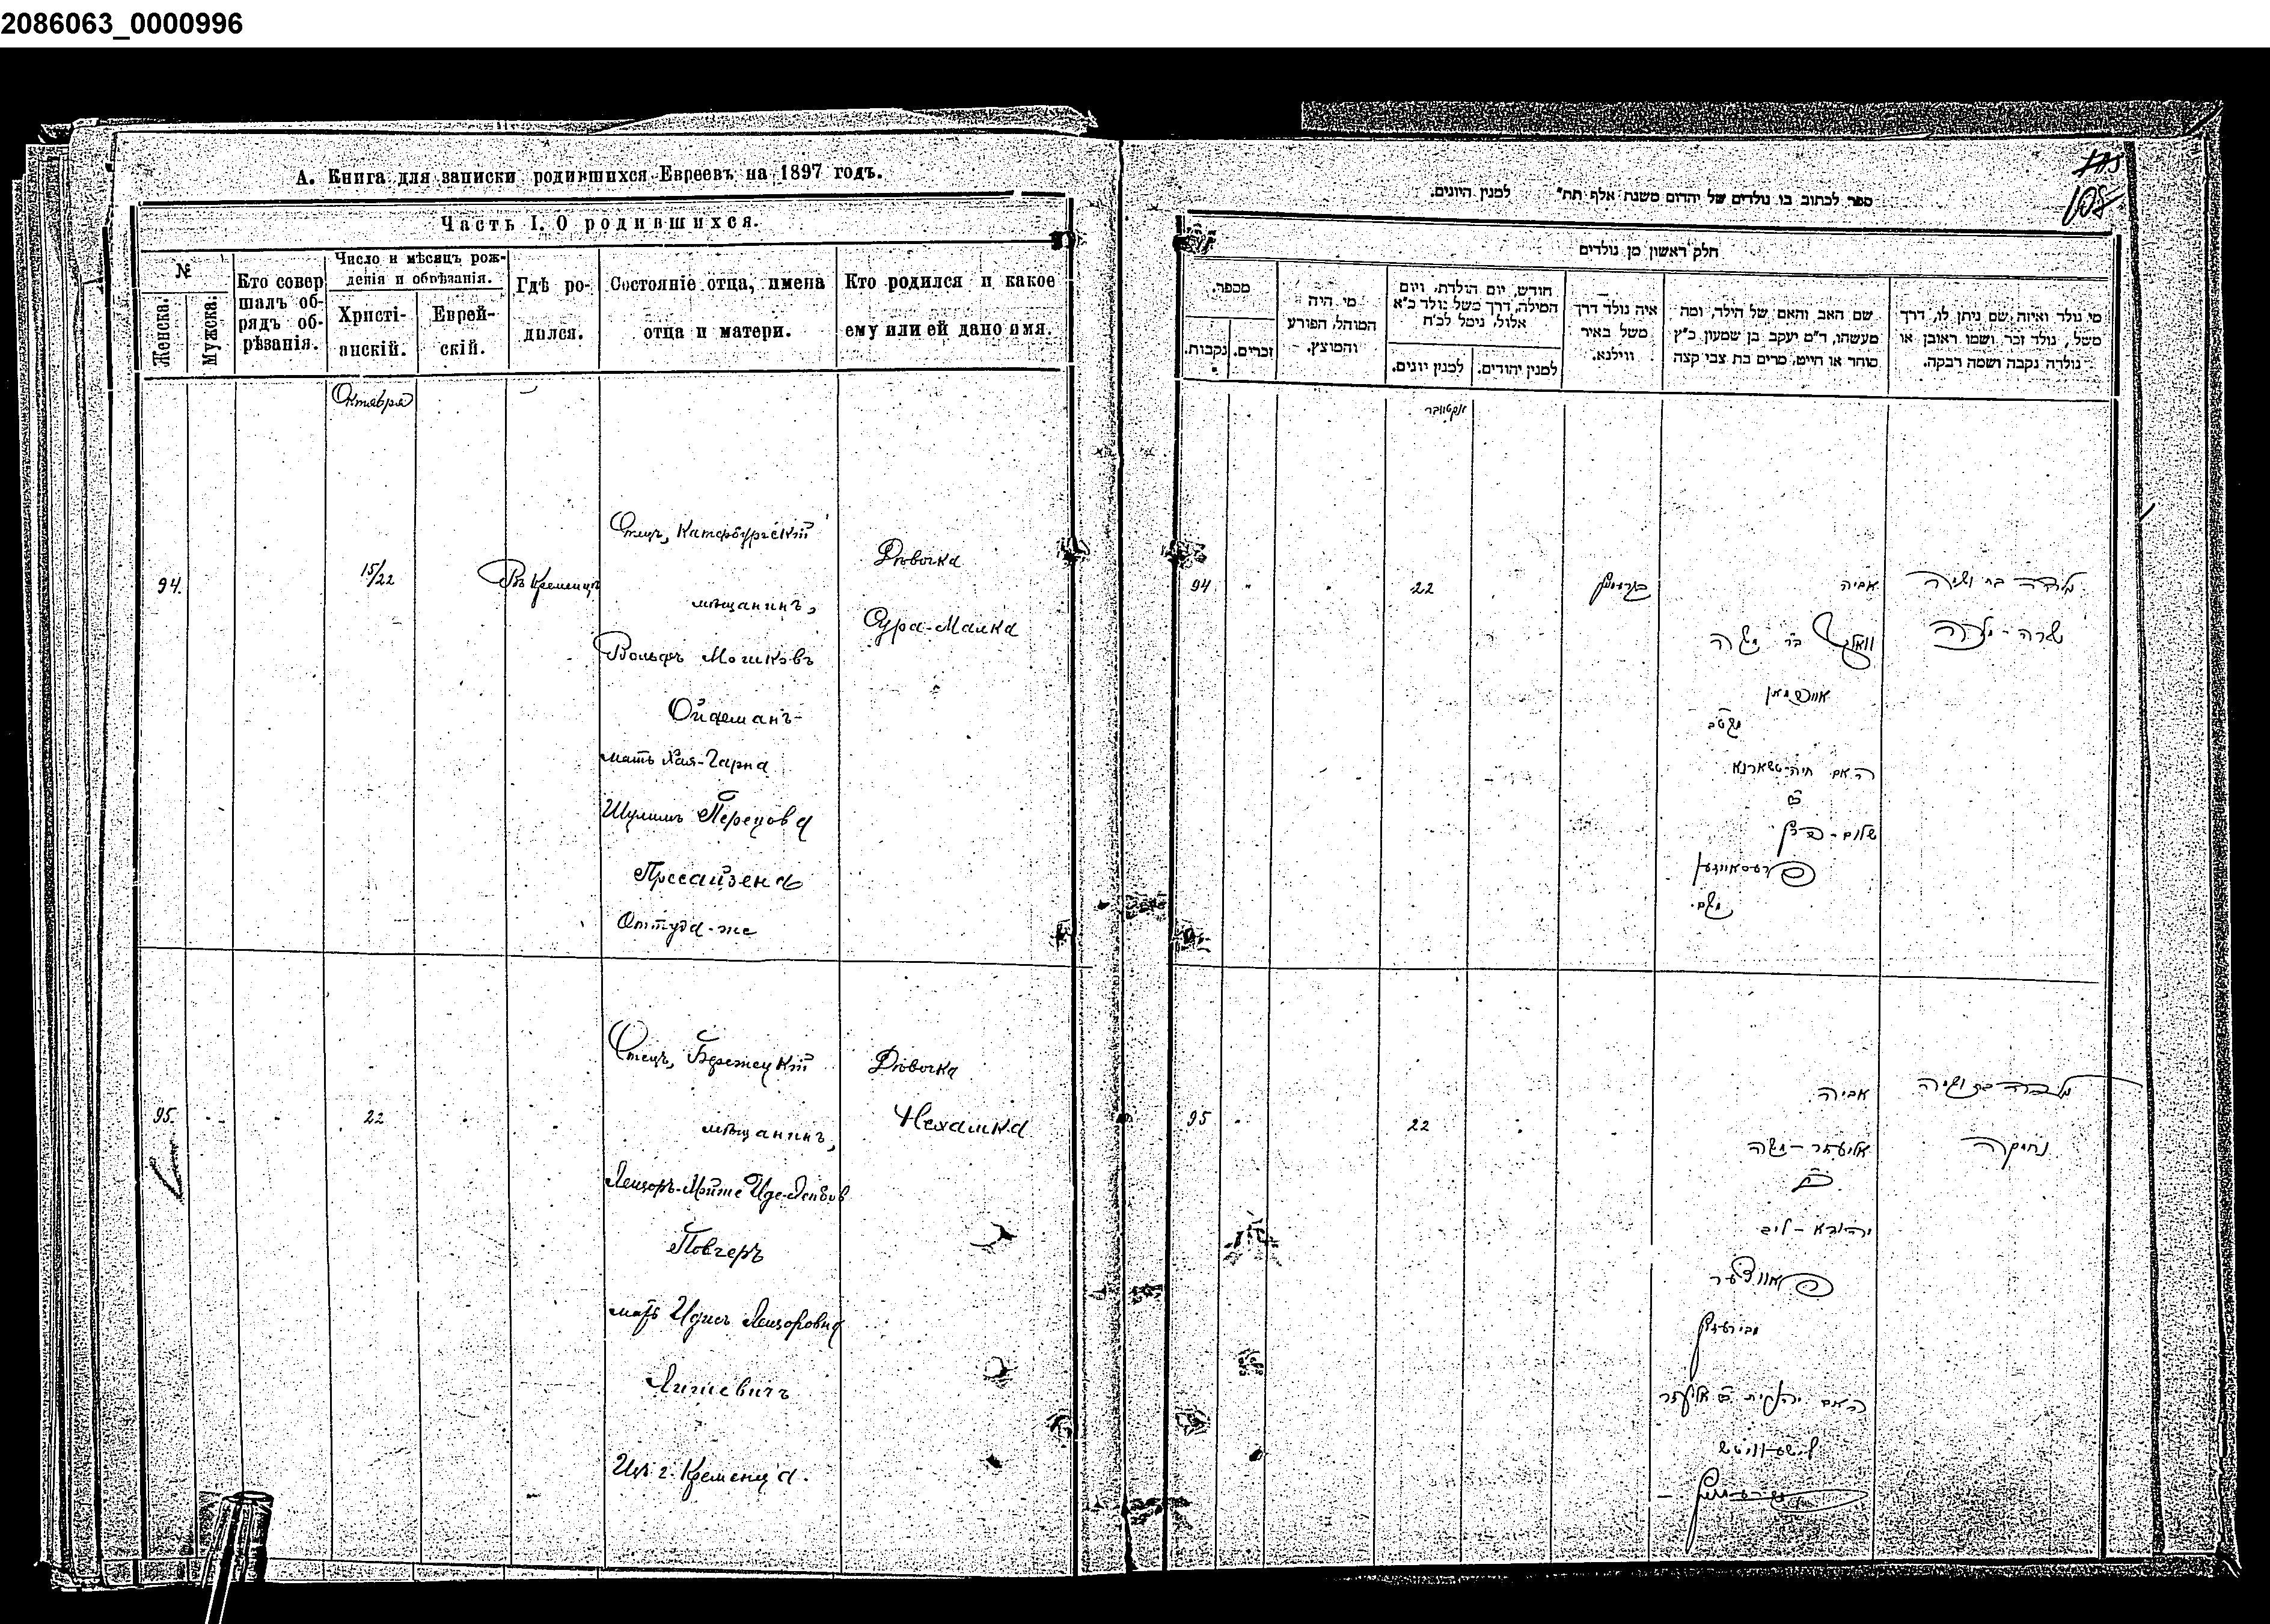 2086063_0000996
А. Книга для записки родившихся Евреевъ на 1897 годъ.
Часть I. О родившихся.
№
Женска.
Мужска.
Кто совер
шалъ об-
рядъ об-
рѣзанія.
Число и мѣсяцъ рож-
денія и обрѣзанія.
Христі-
анскій.
Еврей-
скій.
Гдѣ ро-
дился.
Состояніе отца, имена
отца и матери.
Кто родился и какое
ему или ей дано имя.
Октября
94.
15/22
Въ Кременцѣ
Отецъ, Катербургскій
мѣщанинъ,
Вольфъ Мошковъ
Ойфманъ
мать Хая-Чарна
Шулимъ Перецова
Оттуда-же
Дѣвочка
Сура-Малка
95.
22
Отецъ, Бережецкій
мѣщанинъ,
Повчеръ
мать Идись Лейзоровна
Лишевичъ
Изъ г. Кременца.
Дѣвочка
Нехамка
108
ספר לכתוב בו נולדים של יהדום משנת אלף תת״ למנין היונים.
חלק ראשון מן נולדים
מספר.
נקבות.
זכרים.
מי היה
המוהל, הפורע
והמוצץ.
חודש, יום הולדת, ויום
המילה, דרך משל נולד כ״א
אלול, נימל לכ״ח
למנין יונים.
למנין יהודים.
איה נולד דרך
משל באיר
ווילנא.
שם האב והאם של הילד, ומה
מעשהו, ד״מ יעקב בן שמעון כ״ץ
סוחר או חייט, מרים בת צבי קצה
מי נולד ואיזה שם ניתן לו, דרך
משל, נולד זכר ושמו ראובן או
נולדה נקבה ושמה רבקה.
אקטובר
94
22
אביה
וואלף בר משה
האם חיה-טשארנא
שלום-פרץ
נולדה בת ושמה
שרה-מלכה
95
22
אביה
אליעזר-משה
יהודא-ליב
האם יהודית
נולדה בת ושמה
נחמקה